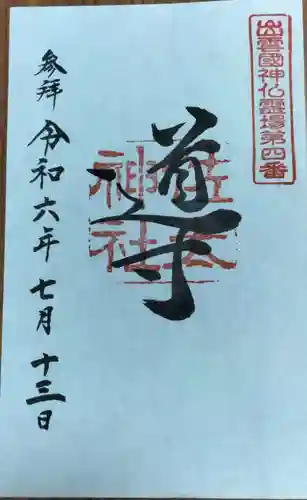 出雲國神仏霊場第四番
導
佐太
神社
参拝 令和六年七月十三日